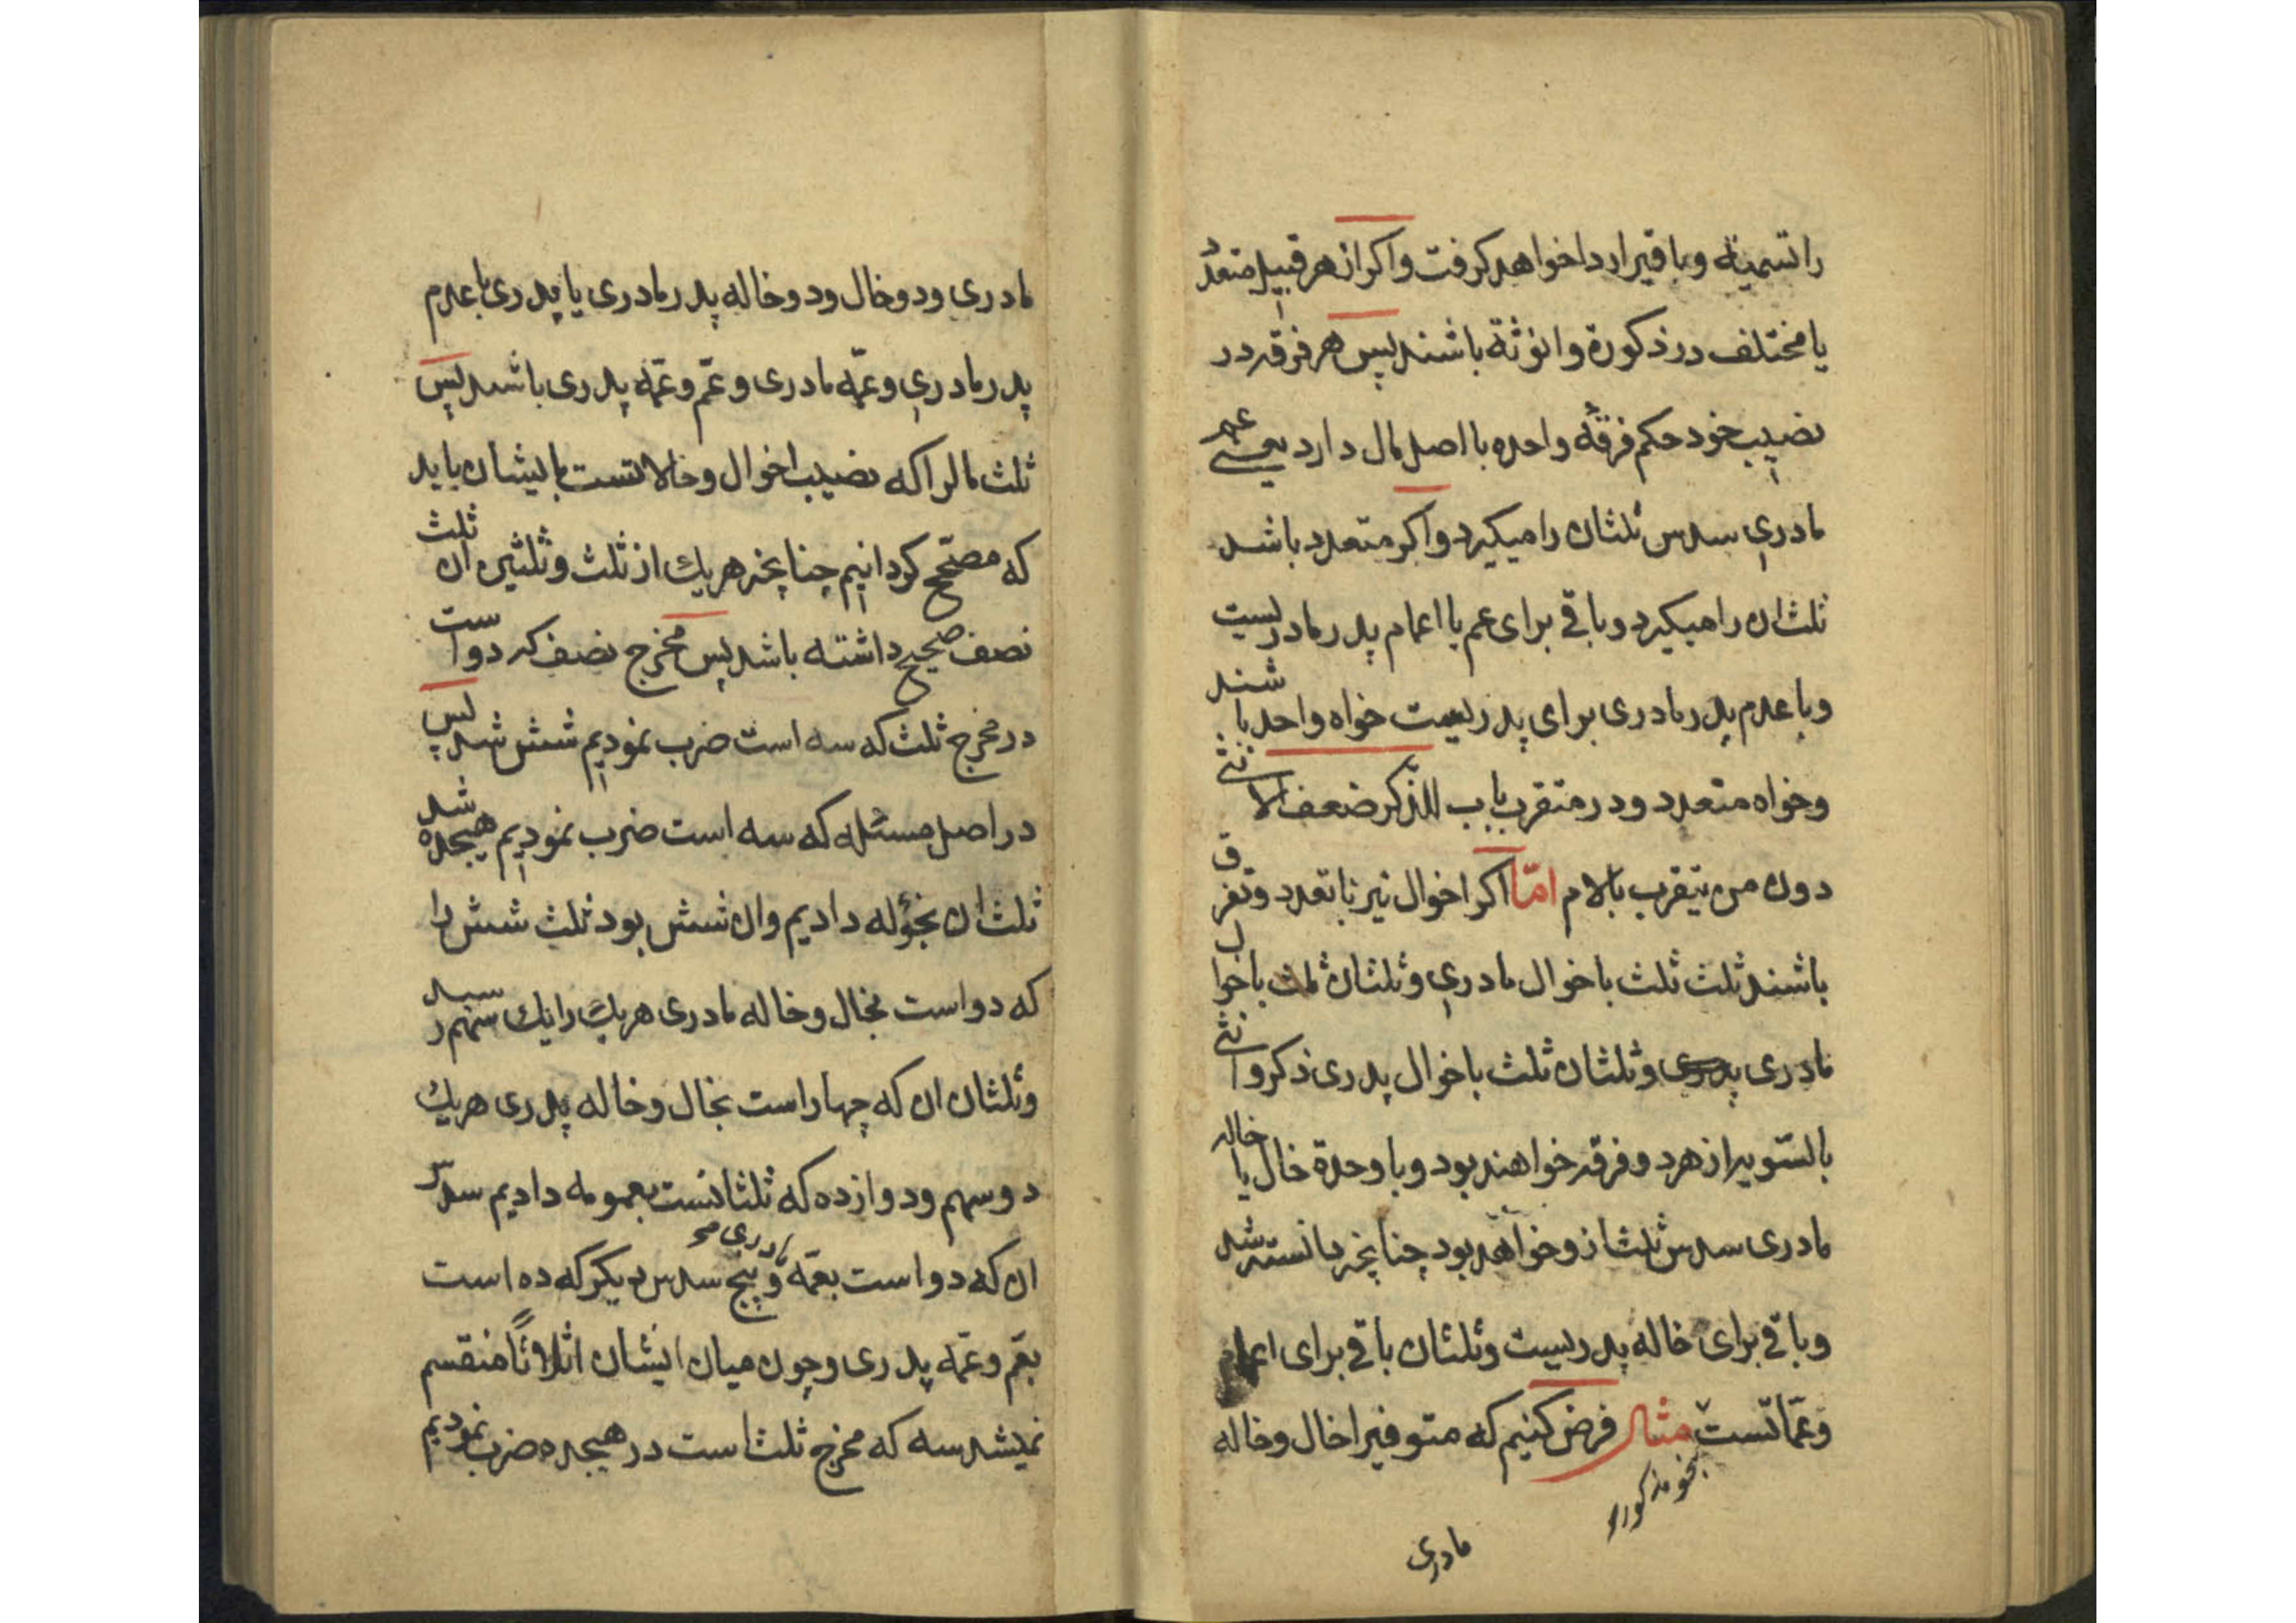 را تسمیة و باقیرا ردا خواهد کرفت و اکر از هر قبیل متعدد
یا مختلف در ذکورة و انوثة باشند پس هر فرقه در
نصیب خود حکم فرقهٔ واحده با اصل مال دارد یعنی عم
مادری سدس ثلثان را میکیرد و اکر متعدد باشد
ثلث ان را میکیرد و باقی برای عم یا اعمام پدر مادریست
و با عدم پدر مادری برای پدریست خواه واحد باشند
و خواه متعدد و در متقرب باب للذکر ضعف الانثی
دون من یتقرب بالام امّا اکر اخوال نیز با تعدد و تفرق
باشند ثلث ثلث با خوال مادری و ثلثان ثلث با خوال
مادری پدری و ثلثان ثلث با خوال پدری ذکر و انثی
بالسّویه از هر دو فرقه خواهند بود و با وحدة خال یا خاله
مادری سدس ثلث از و خواهد بود چنانچه دانسته شد
و باقی برای خاله پدریست و ثلثان باقی برای اعمام
و عمّاتست مثال فرض کنیم که متوفیرا خال و خاله
بنحو مذکور
مادری
مادری و دو خال و دو خاله پدر مادری یا پدری با عدم
پدر مادری و عمّه مادری و عمّ و عمّه پدری باشد پس
ثلث مالرا که نصیب اخوال و خالاتست بایشان باید
که مصحّح کردانیم چنانچه هر یك از ثلث و ثلثین ان ثلث
نصف صحیح داشته باشد پس مخرج نصف که دو است
در مخرج ثلث که سه است ضرب نمودیم شش شد پس
در اصل مسئله که سه است ضرب نمودیم هیجده شد
ثلث ان بخؤله دادیم و ان شش بود ثلث شش را
که دو است بخال و خاله مادری هر یك را یك سهم رسید
و ثلثان ان که چهار است بخال و خاله پدری هر یك
دو سهم و دوازده که ثلثانست بعمومه دادیم سدس
ان که دو است بعمّه مادری و پنج سدس دیکر که ده است
بعّم و عمّه پدری و چون میان ایشان اثلاثاً منقسم
نمیشد سه که مخرج ثلث است در هیجده ضرب نمودیم